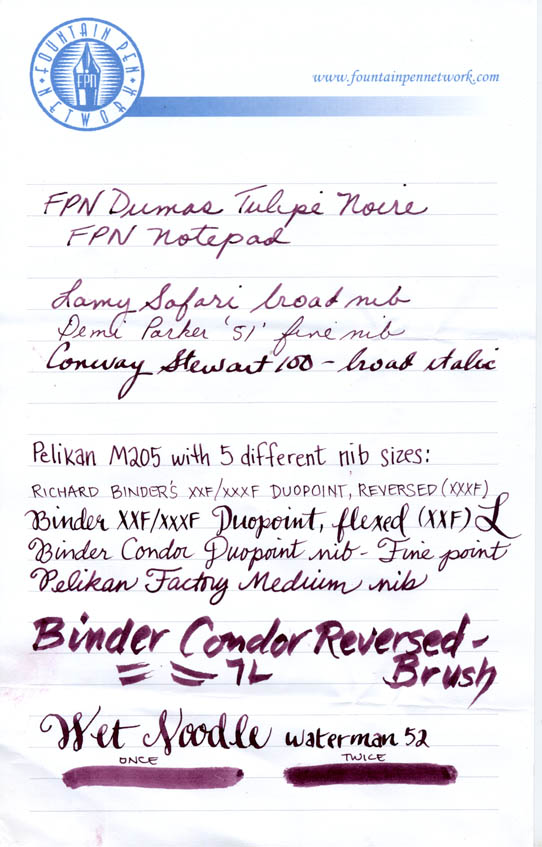 FOUNTAIN PEN NETWORK
FPN
www.fountainpennetwork.com
FPN Dumas Tulipe Noire
FPN Notepad
Lamy Safari broad nib
Demi Parker '51' fine nib
Conway Stewart 100 - broad italic
Pelikan M205 with 5 different nib sizes:
RICHARD BINDER'S XXF/XXXF DUOPOINT, REVERSED (XXXF)
Binder XXF/XXXF Duopoint, flexed (XXF) L
Binder Condor Duopoint nib - Fine point
Pelikan Factory Medium nib
Binder Condor Reversed -
Brush
Wet Noodle Waterman 52
ONCE TWICE